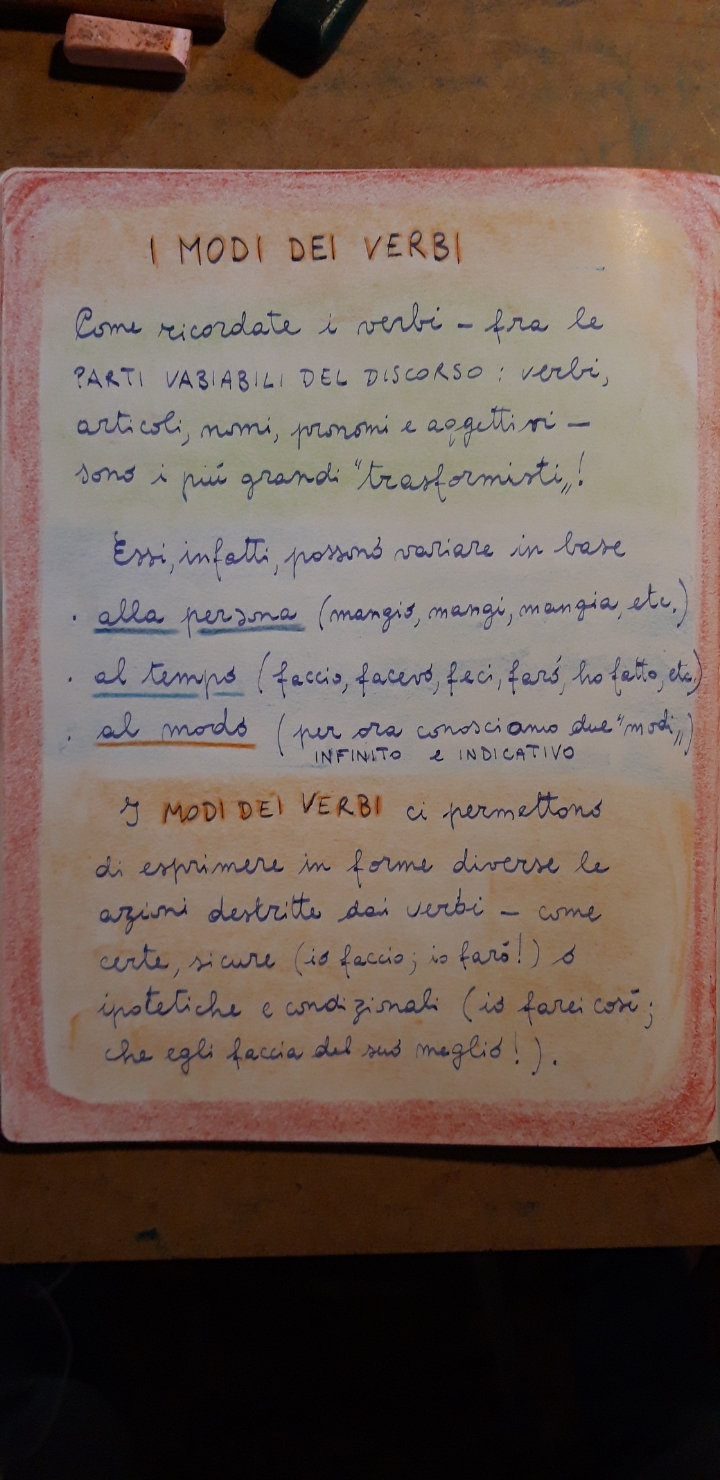 I MODI DEI VERBI
Come ricordate i verbi – fra le
PARTI VABIABILI DEL DISCORSO : verbi,
articoli, nomi, pronomi e aggettivi –
sono i più grandi "trasformisti„!
Essi, infatti, possono variare in base
· alla persona (mangio, mangi, mangia, etc.)
· al tempo (faccio, facevo, feci, farò, ho fatto, etc.)
· al modo (per ora conosciamo due "modi„)
INFINITO e INDICATIVO
I MODI DEI VERBI ci permettono
di esprimere in forme diverse le
azioni destritte dai verbi – come
certe, sicure (io faccio; io farò!) o
ipotetiche e condizionali (io farei così;
che egli faccia del suo meglio!).